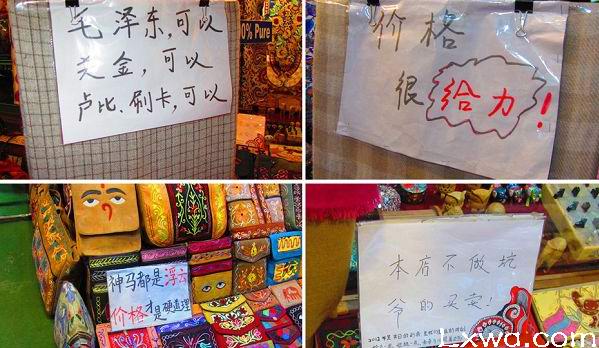 毛泽东,可以
美金,可以
卢比.刷卡,可以
0% Pure
价格
很给力!
神马都是浮云
价格才是硬道理
本店不做坑
爹的买卖!
Lxwa.com